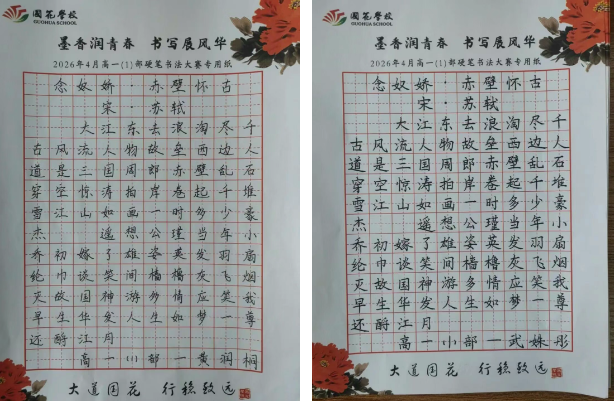 國花學校
GUOHUA SCHOOL
墨香润青春 书写展风华
2026年4月高一(1)部硬笔书法大赛专用纸
念奴娇·赤壁怀古
宋·苏轼
大江东去浪淘尽千
古风流人物故垒西边人
道是三国周郎赤壁乱石
穿空惊涛拍岸卷起千堆
雪江山如画一时多少豪
杰 遥想公瑾当年小
乔初嫁了雄姿英发羽扇
纶巾谈笑间樯橹灰飞烟
灭故国神游多情应笑我
早生华发人生如梦一尊
还酹江月
高一(1)部一黄润桐
大道国花 行稳致远
國花學校
GUOHUA SCHOOL
墨香润青春 书写展风华
2026年4月高一(1)部硬笔书法大赛专用纸
念奴娇·赤壁怀古
宋·苏轼
大江东去浪淘尽千
古风流人物故垒西边人
道是三国周郎赤壁乱石
穿空惊涛拍岸卷起千堆
雪江山如画一时多少豪
杰 遥想公瑾当年小
乔初嫁了雄姿英发羽扇
纶巾谈笑间樯橹灰飞烟
灭故国神游多情应笑我
早生华发人生如梦一尊
还酹江月
高一小部一武姝彤
大道国花 行稳致远